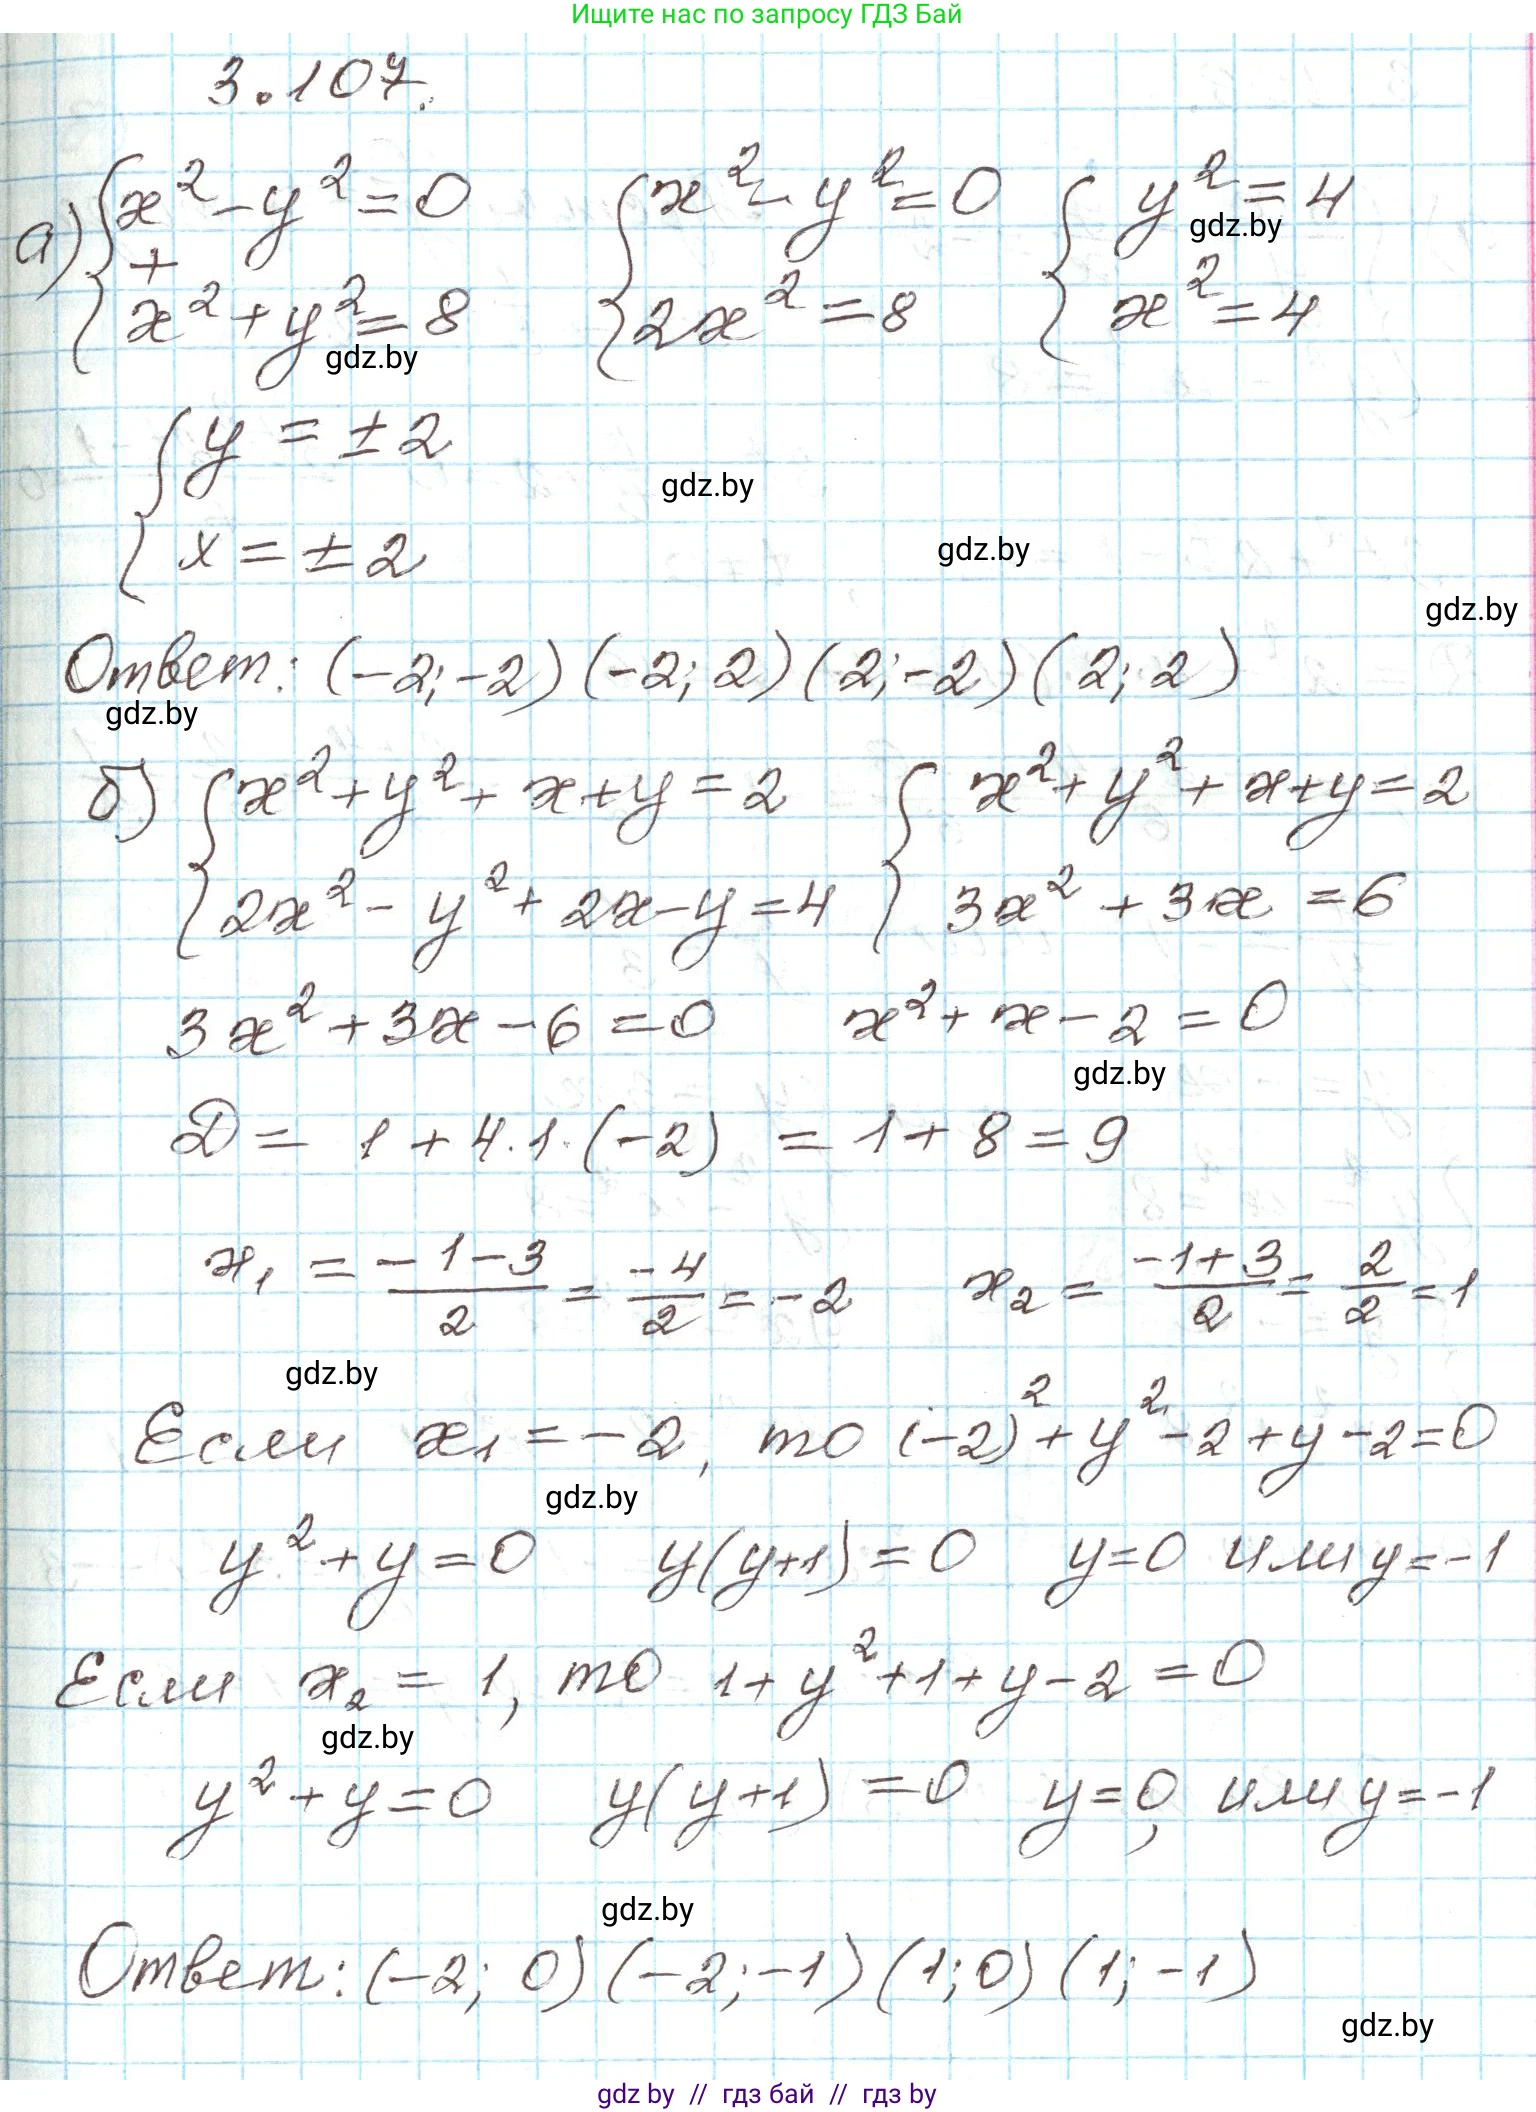 Ищите нас по запросу ГДЗ Бай
3.107.
а) { x² - y² = 0 + x² + y² = 8 { x² - y² = 0 2x² = 8 { y² = 4 x² = 4
gdz.by
gdz.by
{ y = ±2 x = ±2
gdz.by
gdz.by
gdz.by
Ответ: (-2; -2) (-2; 2) (2; -2) (2; 2)
gdz.by
б) { x² + y² + x + y = 2 2x² - y² + 2x - y = 4 { x² + y² + x + y = 2 3x² + 3x = 6
3x² + 3x - 6 = 0 x² + x - 2 = 0
gdz.by
D = 1 + 4·1·(-2) = 1 + 8 = 9
x₁ = (-1-3)/2 = -4/2 = -2 x₂ = (-1+3)/2 = 2/2 = 1
gdz.by
Если x₁ = -2, то (-2)² + y² - 2 + y - 2 = 0
gdz.by
y² + y = 0 y(y+1) = 0 y=0 или y=-1
Если x₂ = 1, то 1 + y² + 1 + y - 2 = 0
gdz.by
y² + y = 0 y(y+1) = 0 y=0, или y=-1
gdz.by
Ответ: (-2; 0) (-2; -1) (1; 0) (1; -1)
gdz.by
gdz by // гдз бай // гдз by